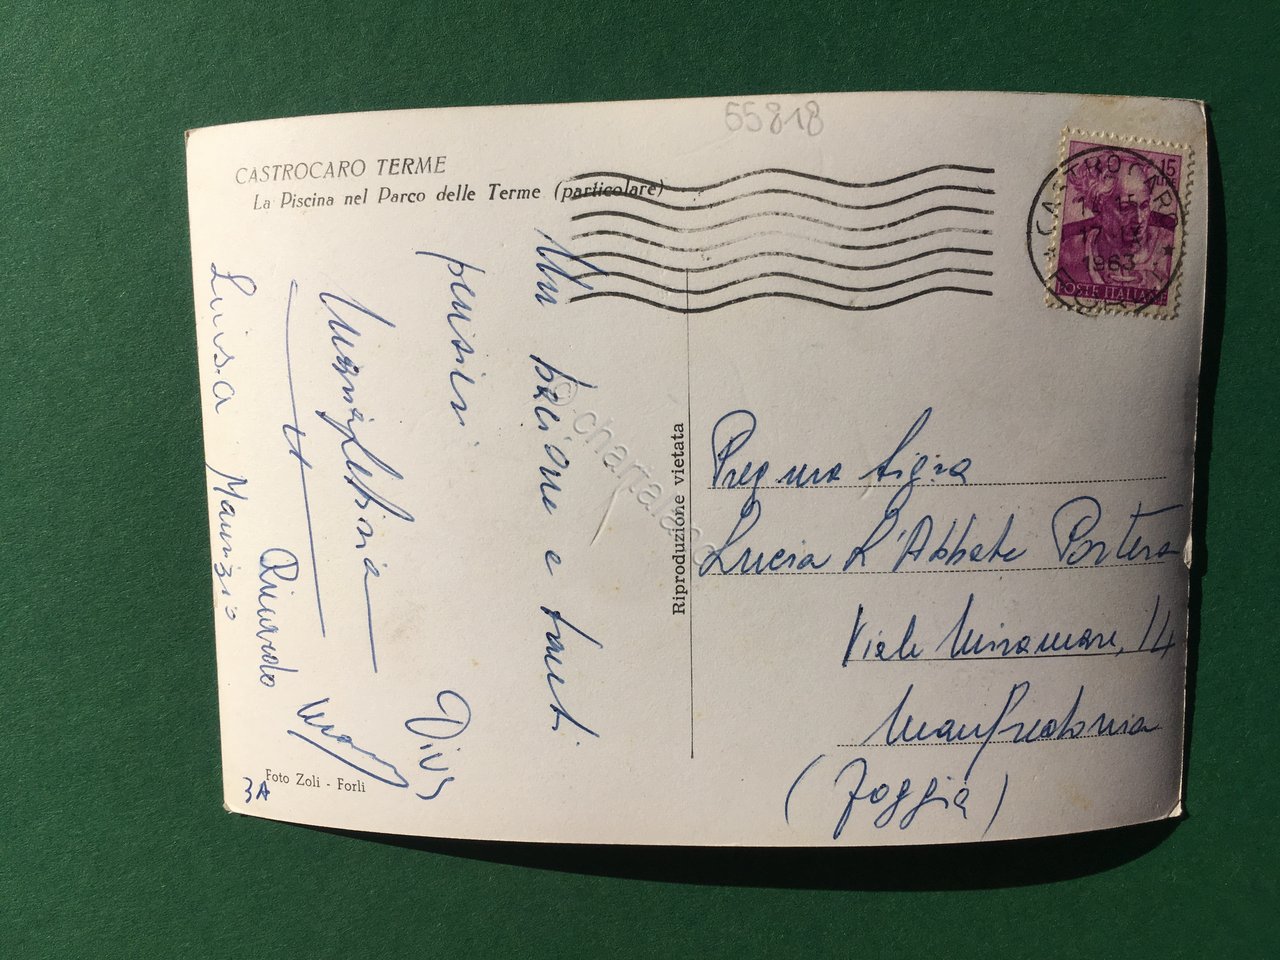 55818
CASTROCARO TERME
La Piscina nel Parco delle Terme (particolare)
15
CASTROCARO TERME
1963
POSTE ITALIANE
Un bacione e tanti
pensieri
Divo
Marialuisa
Riccardo
Luisa Maurizio
Riproduzione vietata
© chartaland
Preg.ma Sig.ra
Lucia L'Abbate Portera
Viale Miramare, 14
Manfredonia
(Foggia)
Foto Zoli - Forlì
3A